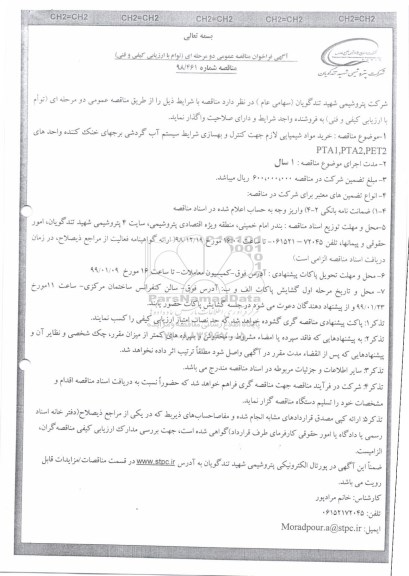 CH2=CH2 CH2=CH2 CH2=CH2 CH2=CH2 CH2=CH2
بسمه تعالی
آگهی فراخوان مناقصه عمومی دو مرحله ای (توام با ارزیابی کیفی و فنی)
مناقصه شماره ۹۸/۲۶۱
شرکت پتروشیمی شهید تندگویان
شرکت پتروشیمی شهید تندگویان (سهامی عام ) در نظر دارد مناقصه با شرایط ذیل را از طریق مناقصه عمومی دو مرحله ای (توام
با ارزیابی کیفی و فنی) به فروشنده واجد شرایط و دارای صلاحیت واگذار نماید.
۱-موضوع مناقصه : خرید مواد شیمیایی لازم جهت کنترل و بهسازی شرایط سیستم آب گردشی برجهای خنک کننده واحد های
PTA1,PTA2,PET2
۲-مدت اجرای موضوع مناقصه : ۱ سال
۳- مبلغ تضمین شرکت در مناقصه ۶۰۰,۰۰۰,۰۰۰ ریال میباشد.
۴- انواع تضمین های معتبر برای شرکت در مناقصه:
۴-۱) ضمانت نامه بانکی ۴-۲) واریز وجه به حساب اعلام شده در اسناد مناقصه
۵-محل و مهلت توزیع اسناد مناقصه : بندر امام خمینی، منطقه ویژه اقتصادی پتروشیمی، سایت ۴ پتروشیمی شهید تندگویان، امور
حقوقی و پیمانها، تلفن ۷۲۰۴۵-۰۶۱۵۲۱ - تا ساعت ۱۶ مورخ ۹۸/۱۲/۱۹( ارائه گواهینامه فعالیت از مراجع ذیصلاح، در زمان
دریافت اسناد مناقصه الزامی است)
۶- محل و مهلت تحویل پاکات پیشنهادی : آدرس فوق-کمیسیون معاملات- تا ساعت ۱۶ مورخ ۹۹/۰۱/۰۹
۷- محل و تاریخ مرحله اول گشایش پاکات الف و ب: آدرس فوق- سالن کنفرانس ساختمان مرکزی- ساعت ۱۱مورخ
۹۹/۰۱/۲۳ و از پیشنهاد دهندگان دعوت می شود در جلسه گشایش پاکات حضور یابند.
تذکر۱: پاکت پیشنهادی مناقصه گری گشوده خواهد شد که حد نصاب امتیاز ارزیابی کیفی را کسب نمایند.
تذکر۲: به پیشنهادهایی که فاقد سپرده یا امضاء مشروط و مخدوش و سپرده های کمتر از میزان مقرر، چک شخصی و نظایر آن و
پیشنهادهایی که پس از انقضاء مدت مقرر در آگهی واصل شود مطلقاً ترتیب اثر داده نخواهد شد.
تذکر۳: سایر اطلاعات و جزئیات مربوطه در اسناد مناقصه مندرج می باشد.
تذکر۴: شرکت در فرآیند مناقصه جهت مناقصه گری فراهم خواهد شد که حضوراً نسبت به دریافت اسناد مناقصه اقدام و
مشخصات خود را تسلیم دستگاه مناقصه گزار نماید.
تذکر۵: ارائه کپی مصدق قراردادهای مشابه انجام شده و مفاصاحساب‌های ذیربط که در یکی از مراجع ذیصلاح(دفتر خانه اسناد
رسمی یا دادگاه یا امور حقوقی کارفرمای طرف قرارداد)گواهی شده است، جهت بررسی مدارک ارزیابی کیفی مناقصه‌گران،
الزامیست.
ضمناً این آگهی در پورتال الکترونیکی پتروشیمی شهید تندگویان به آدرس www.stpc.ir در قسمت مناقصات/مزایدات قابل
رویت می باشد.
کارشناس: خانم مرادپور
تلفن: ۰۶۱۵۲۱۷۲۰۴۵
ایمیل: Moradpour.a@stpc.ir
ParsNamadData